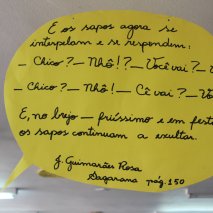 E os sapos agora se
interpelam e se respondem:
— Chico? — Nhô!? — Você vai? — V
— Chico? — Nhô! — Cê vai? — Vo
E, no brejo — friíssimo e em festa
os sapos continuam a exultar.
J. Guimarães Rosa
Sagarana pág. 150